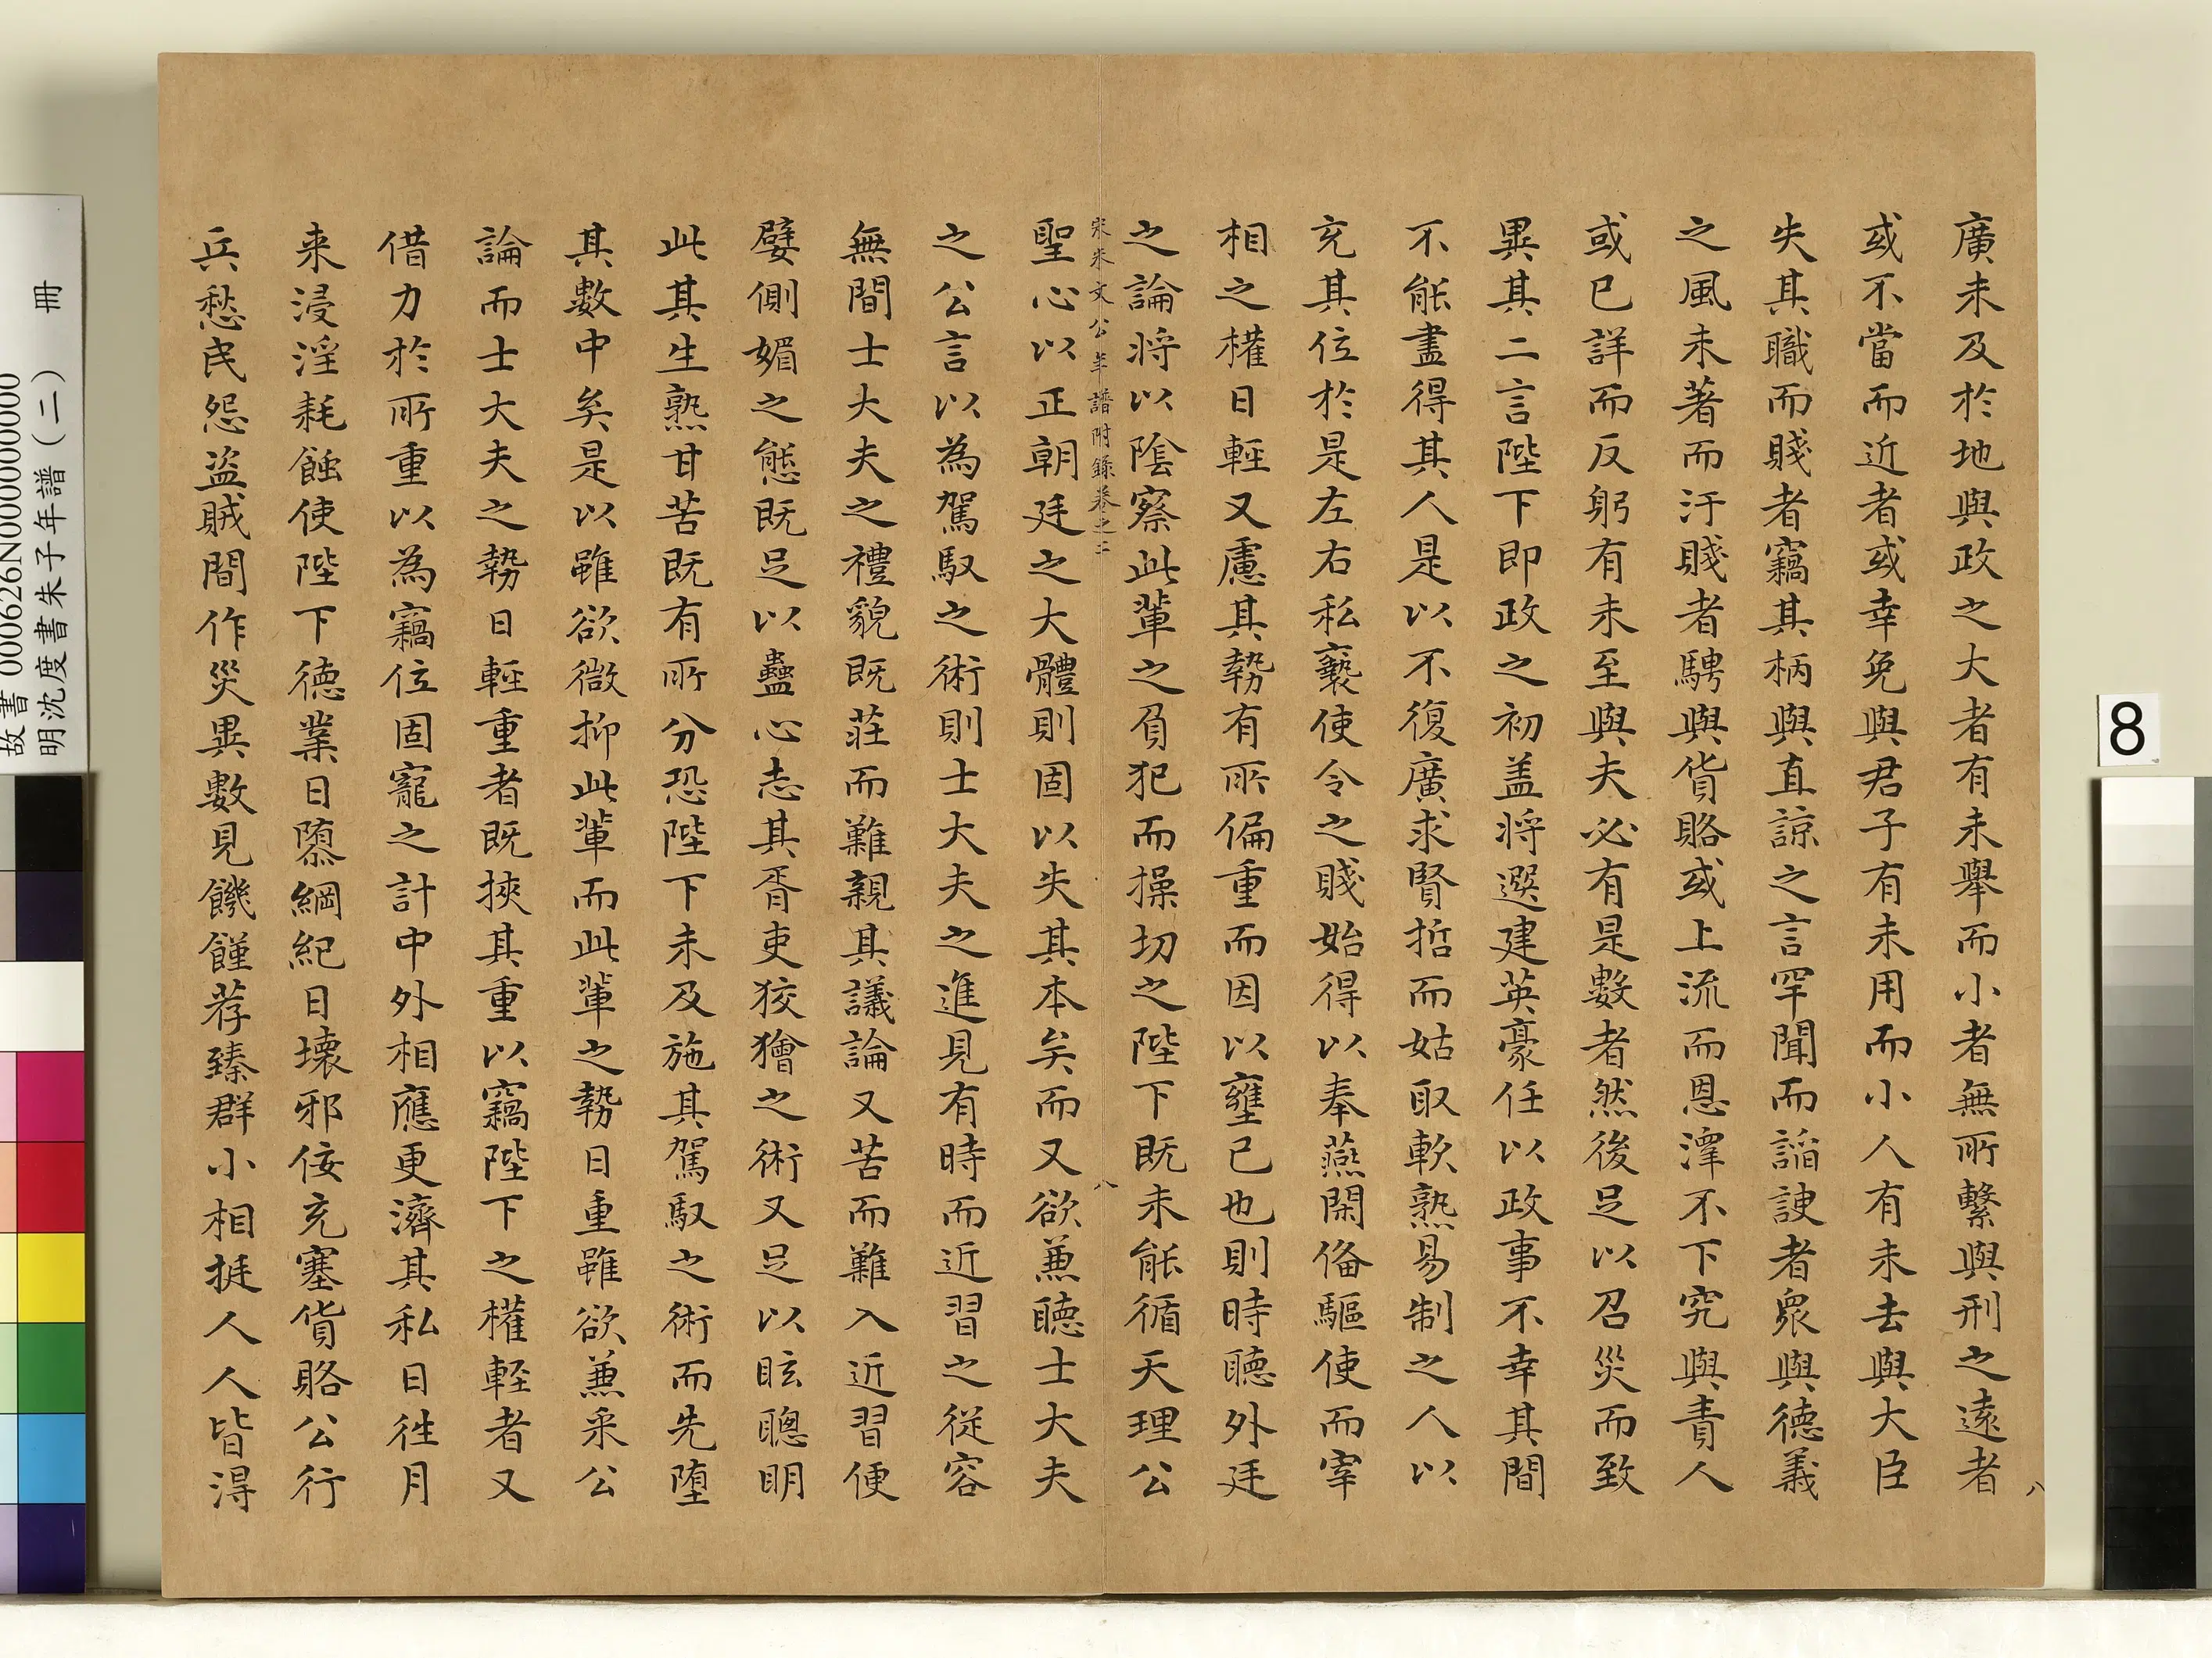 廣未及於地與政之大者有未舉而小者無所繫與刑之遠者
或不當而近者或幸免與君子有未用而小人有未去與大臣
失其職而賤者竊其柄與直諒之言罕聞而謟諛者衆與德義
之風未著而汙賤者騁與貨賂或上流而恩澤不下究與責人
或已詳而反躬有未至與夫必有是數者然後足以召災而致
異其二言陛下即政之初盖將選建英豪任以政事不幸其間
不能盡得其人是以不復廣求賢哲而姑取軟熟易制之人以
充其位於是左右私褻使令之賤始得以奉燕閑俻驅使而宰
相之權日輕又慮其勢有所偏重而因以壅己也則時聽外廷
之論將以陰察此輩之負犯而操切之陛下既未能循天理公
宋朱文公年譜附錄卷之二
八
聖心以正朝廷之大體則固以失其本矣而又欲兼聽士大夫
之公言以為駕馭之術則士大夫之進見有時而近習之從容
無間士大夫之禮貌既莊而難親其議論又苦而難入近習便
嬖側媚之態既足以蠱心志其胥吏狡獪之術又足以眩聰明
此其生熟甘苦既有所分恐陛下未及施其駕馭之術而先墮
其數中矣是以雖欲微抑此輩而此輩之勢日重雖欲兼采公
論而士大夫之勢日輕重者既挾其重以竊陛下之權輕者又
借力於所重以為竊位固寵之計中外相應更濟其私日徃月
来浸淫耗蝕使陛下德業日隳綱紀日壞邪佞充塞貨賂公行
兵愁民怨盜賊間作災異數見饑饉荐臻群小相挻人人皆得
八
故書000626N000000000
明沈度書朱子年譜(二) 冊
8